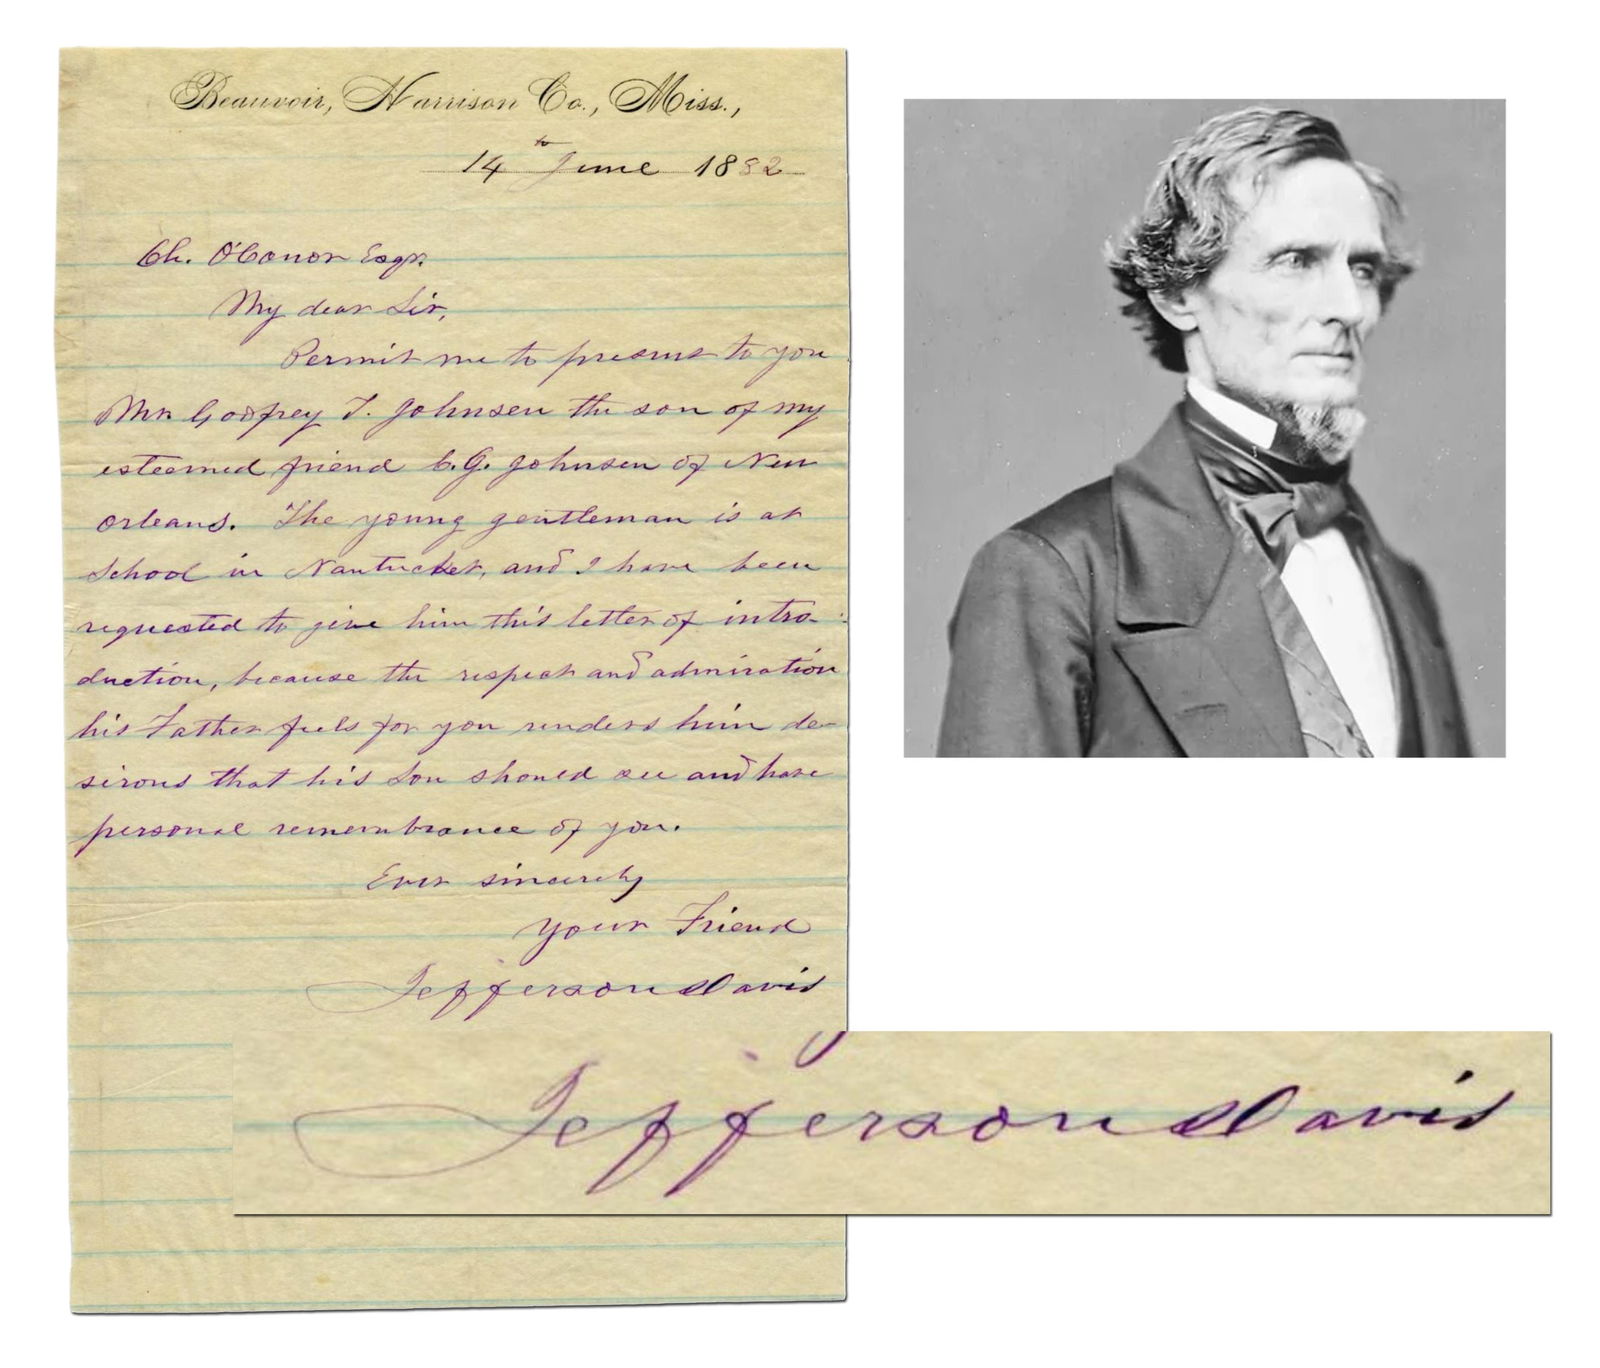 Beauvoir, Harrison Co., Miss.,
14th June 1882
Ch. O'Conor Esqr.
My dear Sir,
Permit me to present to you
Mr. Godfrey T. Johnsen the son of my
esteemed friend C. G. Johnsen of New
Orleans. The young gentleman is at
School in Nantucket, and I have been
requested to give him this letter of intro-
duction, because the respect and admiration
his Father feels for you renders him de-
sirous that his Son should see and have
personal remembrance of you.
Ever sincerely
your Friend
Jefferson Davis
Jefferson Davis